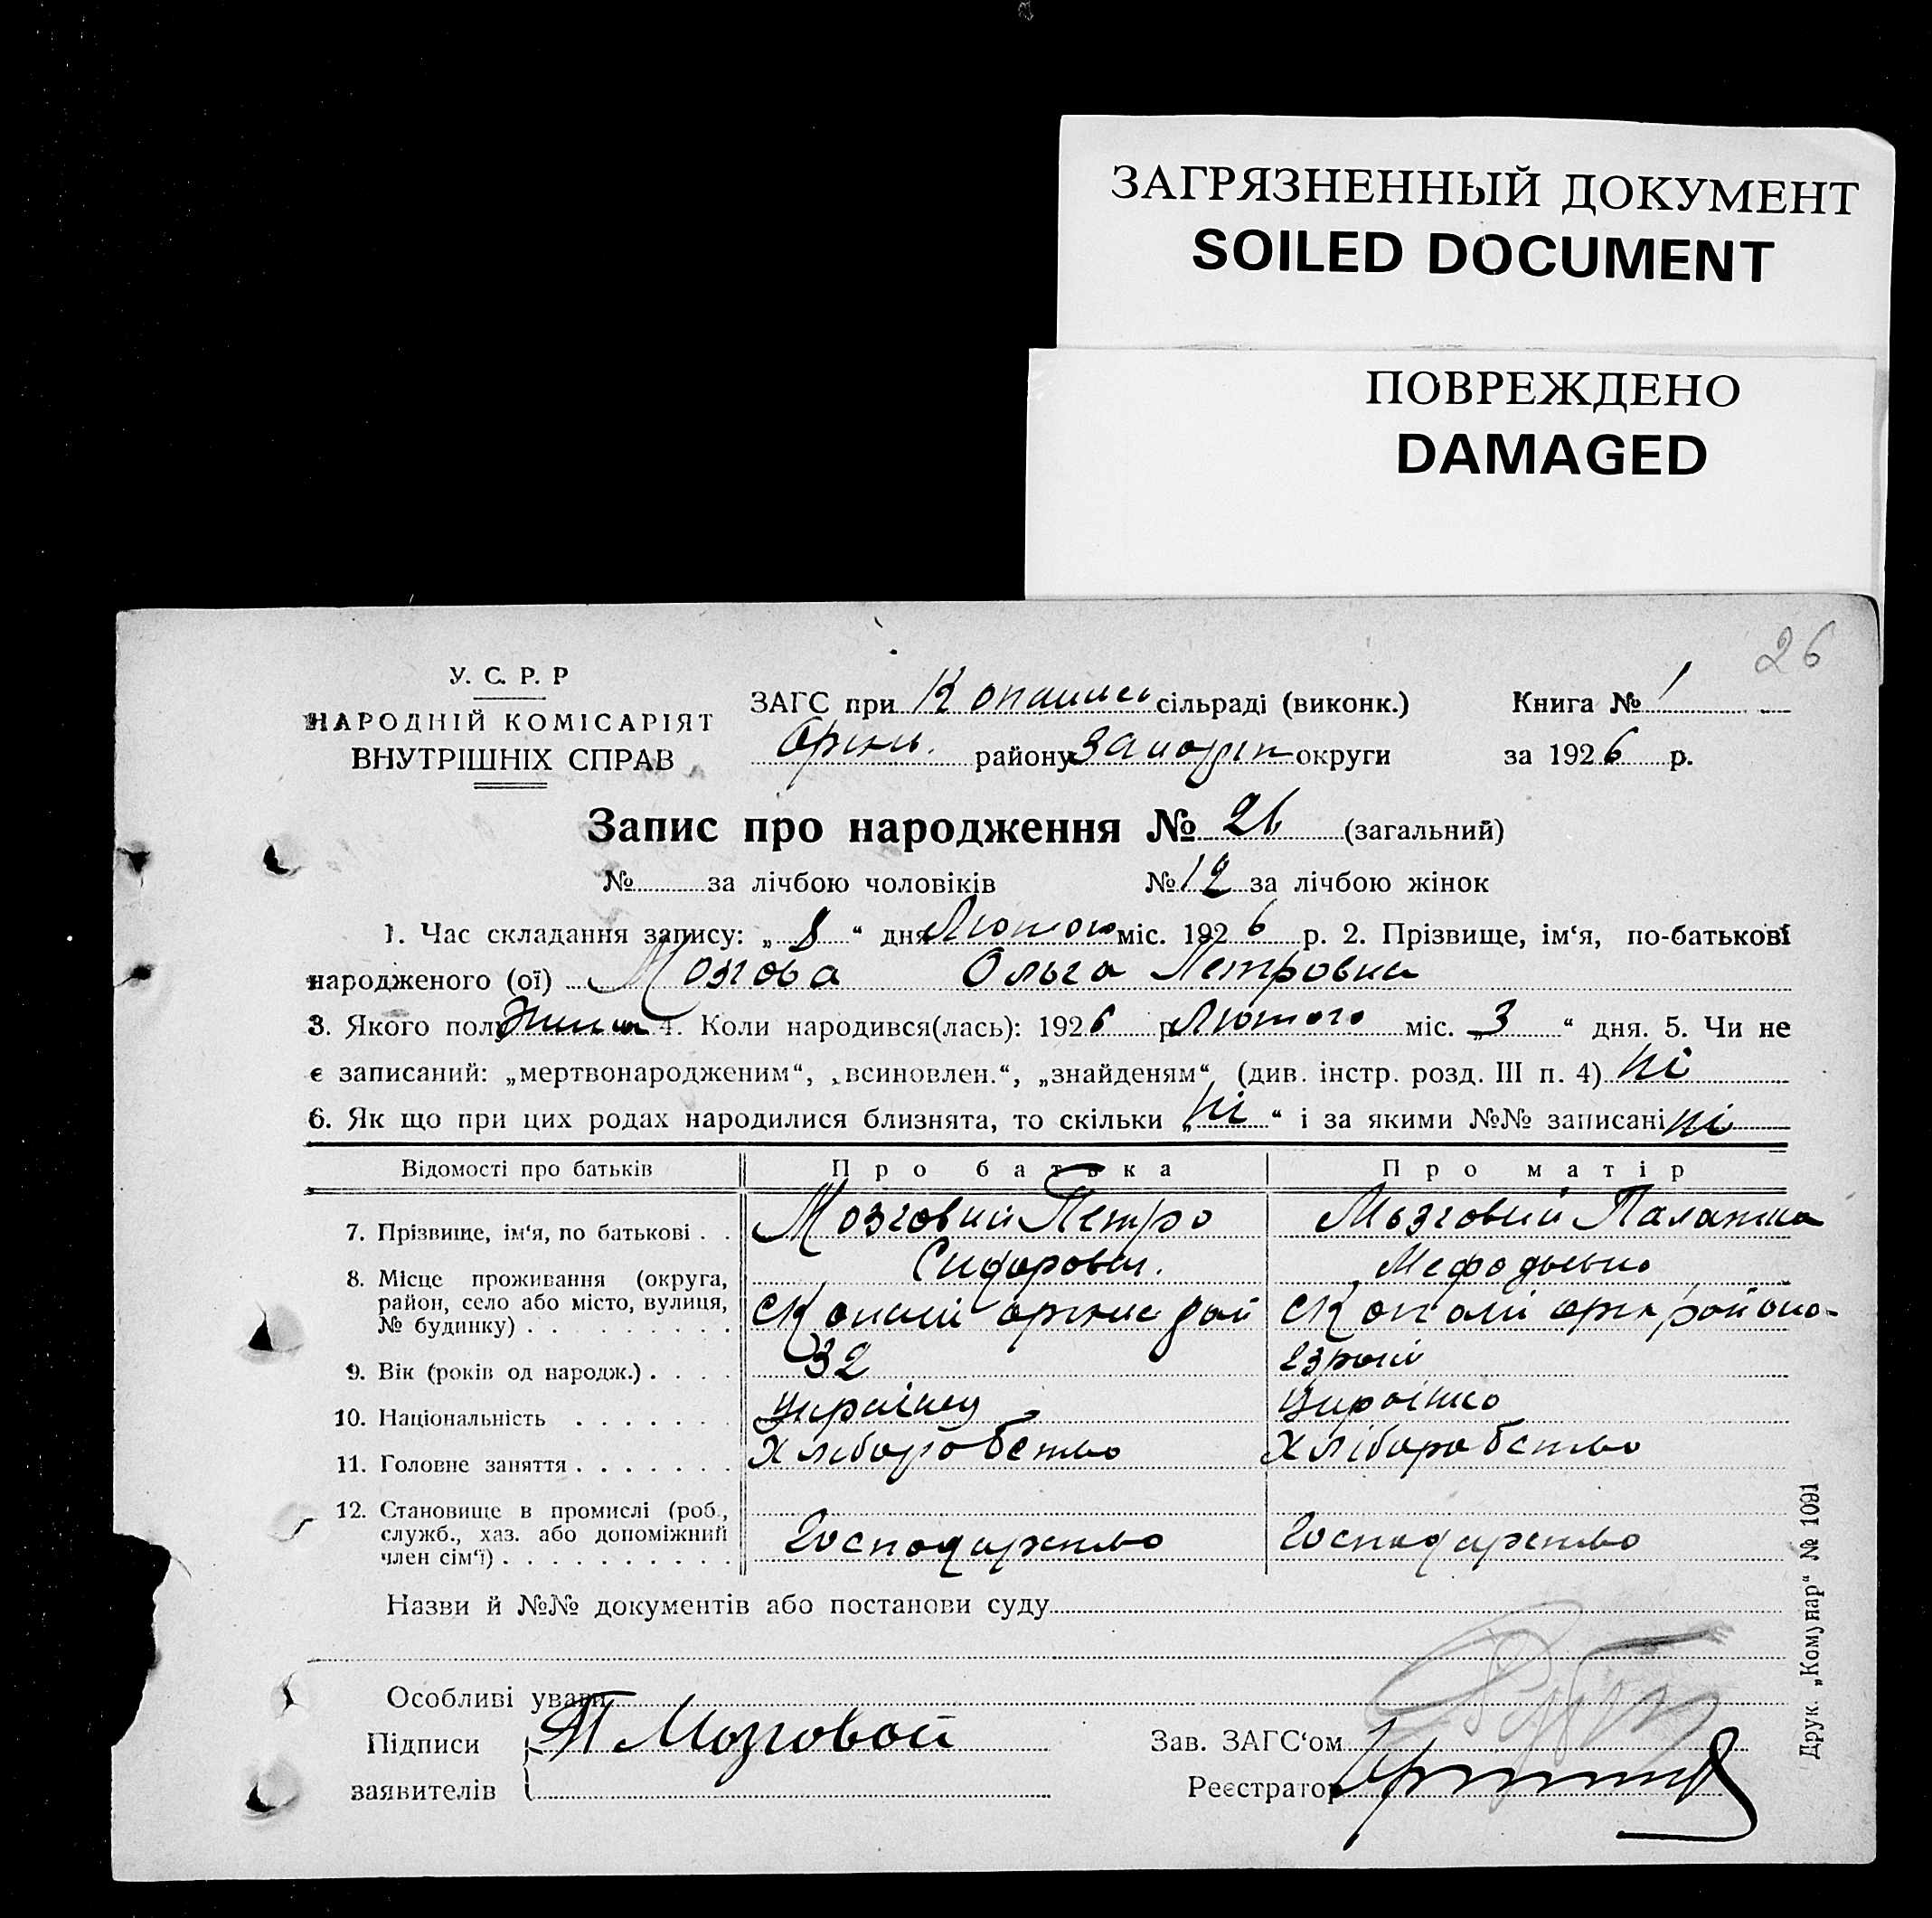 ЗАГРЯЗНЕННЫЙ ДОКУМЕНТ
SOILED DOCUMENT
ПОВРЕЖДЕНО
DAMAGED
26
У. С. Р. Р
НАРОДНІЙ КОМІСАРІЯТ
ВНУТРІШНІХ СПРАВ
ЗАГС при сільраді (виконк.) Книга № 1
району округи за 1926 р.
Запис про народження № 26 (загальний)
№ за лічбою чоловіків № 12 за лічбою жінок
1. Час складання запису: „ 8 “ дня Лютого міс. 1926 р. 2. Прізвище, ім‘я, по-батькові
народженого (ої) Мозгова Ольга Петровна
3. Якого полу 4. Коли народився(лась): 1926 р Лютого міс. „ 3 “ дня. 5. Чи не
є записаний: „мертвонародженим“, „всиновлен.“, „знайденям“ (див. інстр. розд. III п. 4) ні
6. Як що при цих родах народилися близнята, то скільки „ ні “ і за якими №№ записані ні
Відомості про батьків Про батька Про матір
7. Прізвище, ім‘я, по батькові . . Мозговий Петро Мозговий Палажка
Сидорович. Мефодьевна
8. Місце проживання (округа,
район, село або місто, вулиця,
№ будинку) . . . . . . . . .
9. Вік (років од народж.) . . . . 32 23 років
10. Національність . . . . . . . українец українка
11. Головне заняття . . . . . . . Хліборобство Хліборобство
12. Становище в промислі (роб.,
служб., хаз. або допоміжний
член сім‘ї) . . . . . . . . . . Господарство Господарство
Назви й №№ документів або постанови суду
Особливі уваги
Підписи П Мозговой
заявителів
Зав. ЗАГС‘ом
Реєстратор
Друк. „Комунар“ № 1091